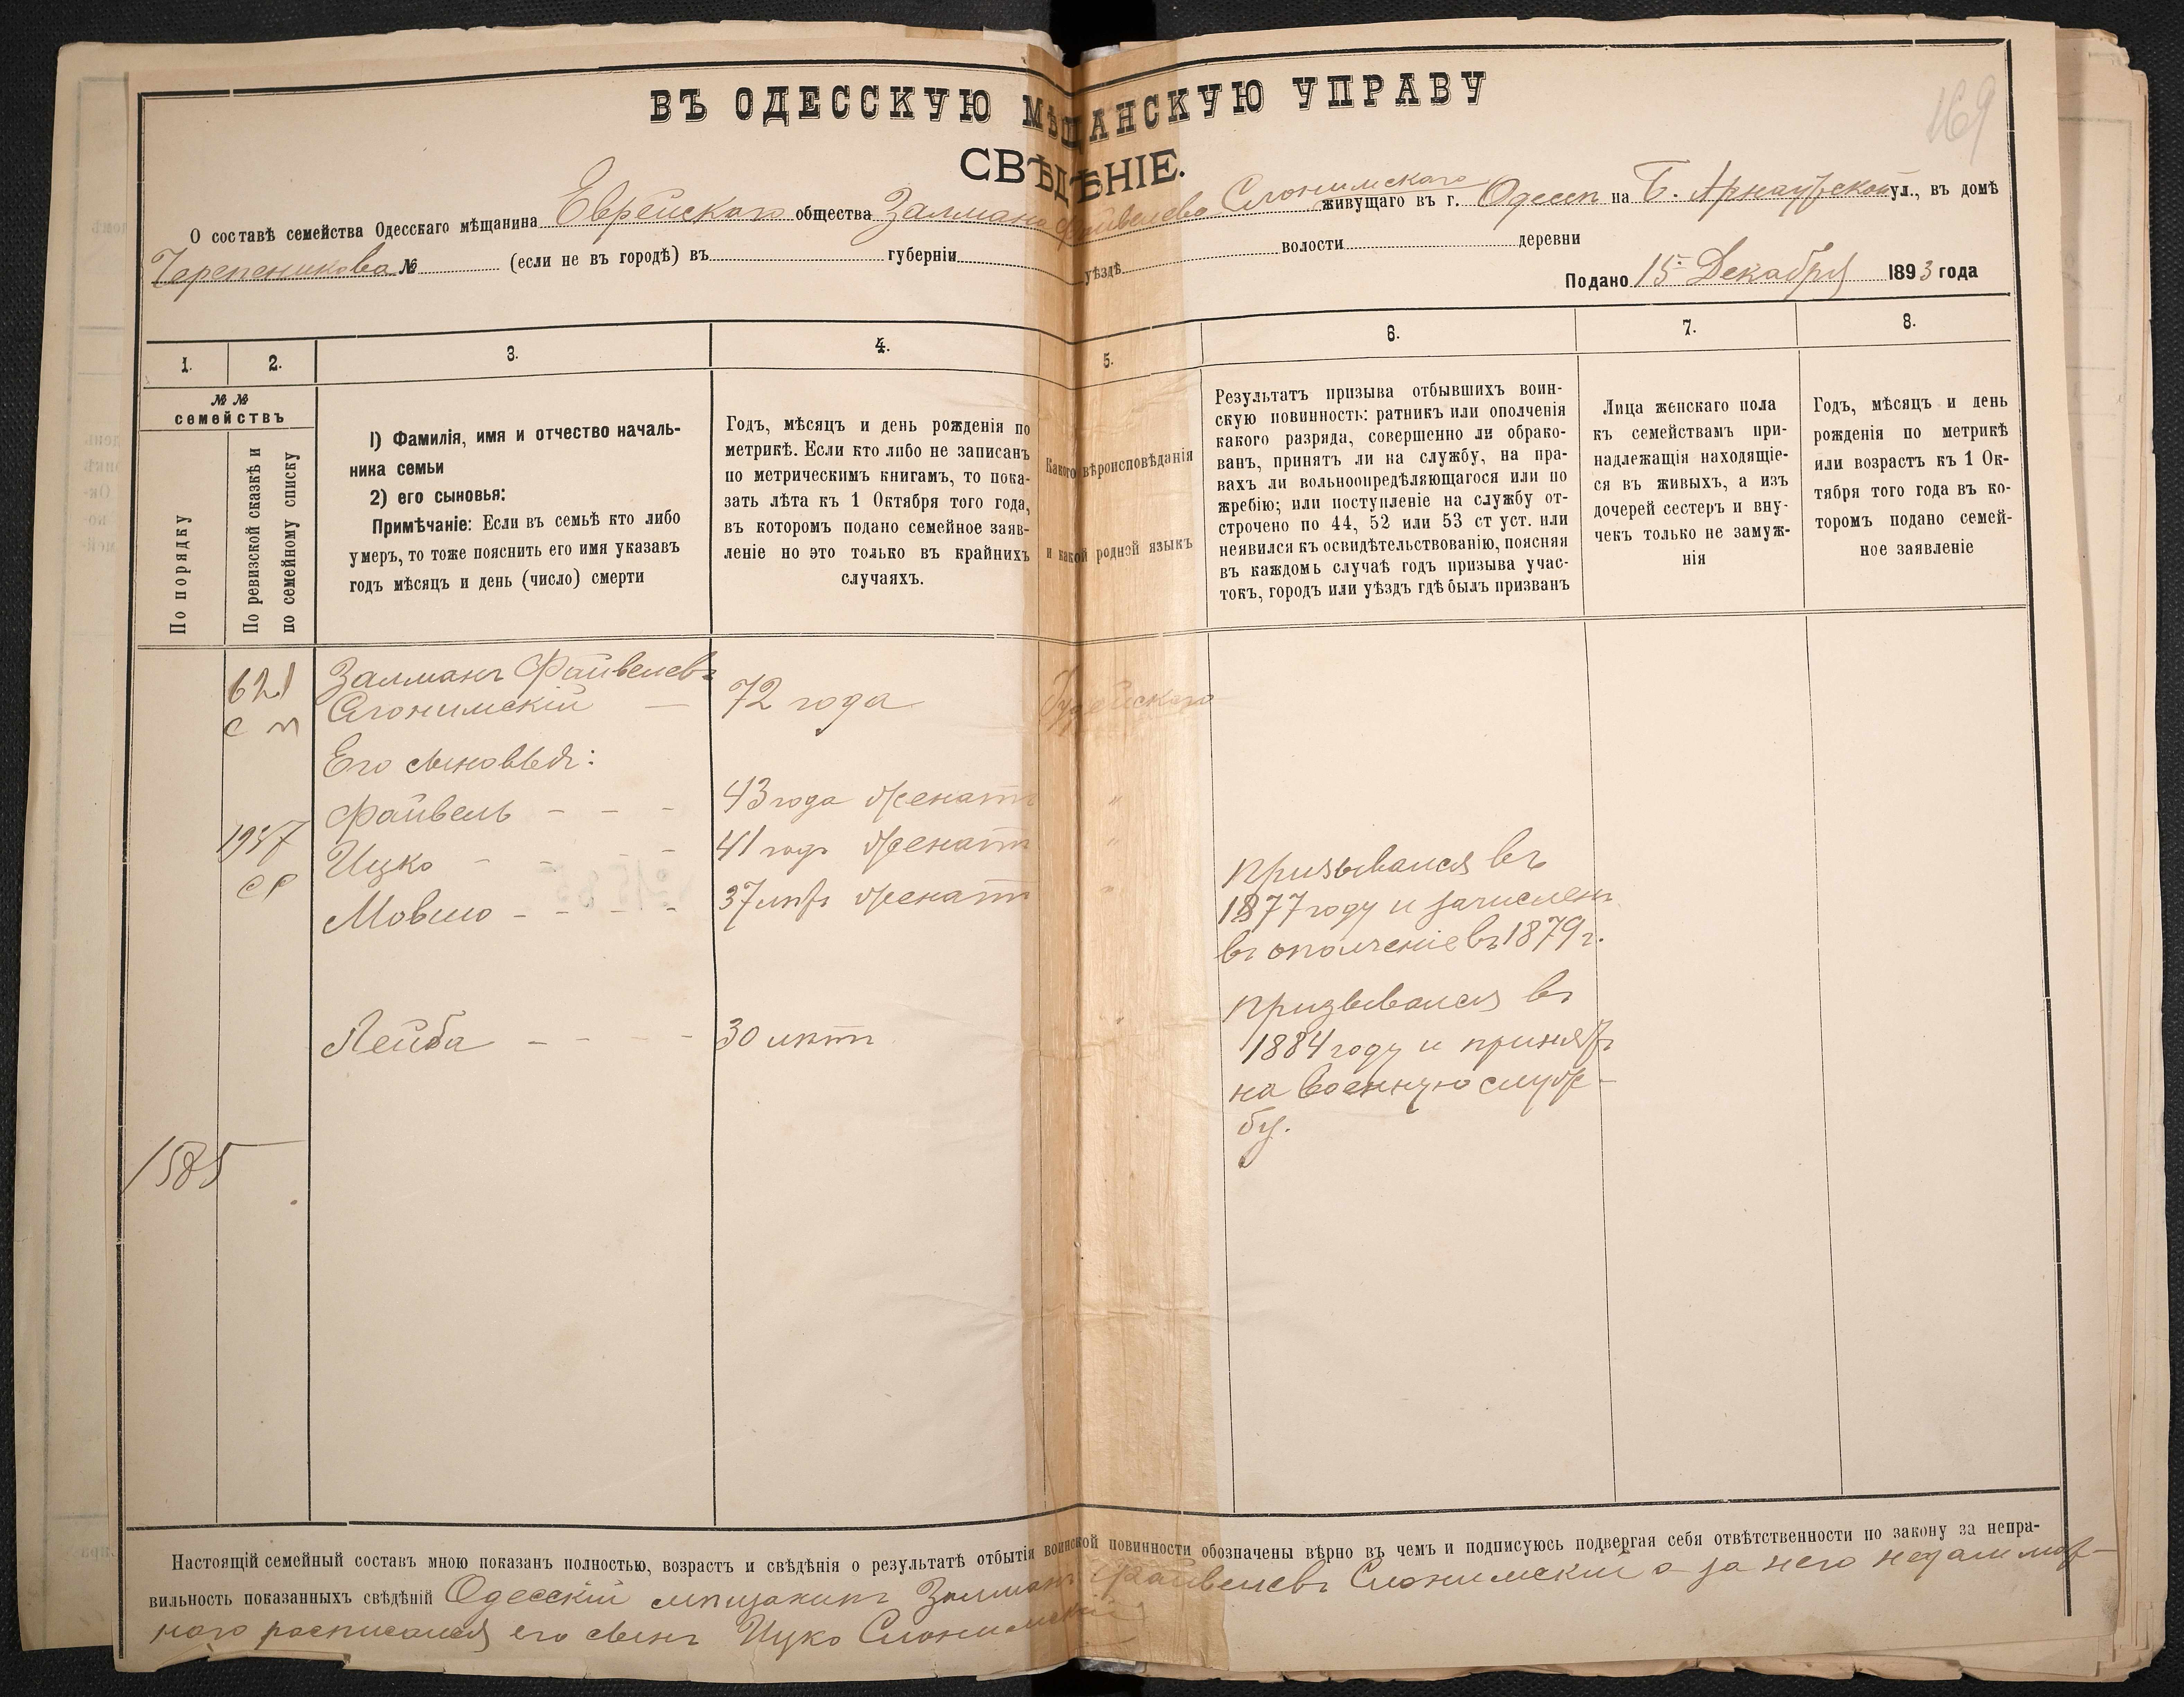 169
ВЪ ОДЕССКУЮ МѢЩАНСКУЮ УПРАВУ
СВѢДѢНІЕ.
О составѣ семейства Одесскаго мѣщанина Еврейскаго общества Залмана Файвелева Слонимскаго живущаго въ г. Одессѣ на Б. Арнаутской ул., въ домѣ
Черепенникова № (если не въ городѣ) въ губерніи уѣздѣ волости деревни
Подано 15 Декабря 1893 года
1.
2.
3.
4.
5.
6.
7.
8.
№ №
семействъ
По порядку
По ревизской сказкѣ и
по семейному списку
1) Фамилія, имя и отчество началь-
ника семьи
2) его сыновья:
Примѣчаніе: Если въ семьѣ кто либо
умеръ, то тоже пояснить его имя указавъ
годъ мѣсяцъ и день (число) смерти
Годъ, мѣсяцъ и день рожденія по
метрикѣ. Если кто либо не записанъ
по метрическимъ книгамъ, то пока-
зать лѣта къ 1 Октября того года,
въ которомъ подано семейное заяв-
леніе но это только въ крайнихъ
случаяхъ.
Какого вѣроисповѣданія
и какой родной языкъ
Результатъ призыва отбывшихъ воин-
скую повинность: ратникъ или ополченія
какого разряда, совершенно ли обрако-
ванъ, принятъ ли на службу, на пра-
вахъ ли вольноопредѣляющагося или по
жребію; или поступленіе на службу от-
строчено по 44, 52 или 53 ст уст. или
неявился къ освидѣтельствованію, поясняя
въ каждомь случаѣ годъ призыва учас-
токъ, городъ или уѣздъ гдѣ былъ призванъ
Лица женскаго пола
къ семействамъ при-
надлежащія находящіе-
ся въ живыхъ, а изъ
дочерей сестеръ и вну-
чекъ только не замуж-
нія
Годъ, мѣсяцъ и день
рожденія по метрикѣ
или возрастъ къ 1 Ок-
тября того года въ ко-
торомъ подано семей-
ное заявленіе
621
с м
Залманъ Файвелевъ
Слонимскій — 72 года Іудейскаго
Его сыновья:
Файвель - - - 43 года женатъ "
Ицко - - - - 41 годъ женатъ "
Мовшо - - - - 37 лѣтъ женатъ "
1937
ср
Призывался въ
1877 году и зачисленъ
въ ополченіе въ 1879 г.
Лейба - - - - 30 лѣтъ "
Призывался въ
1884 году и принятъ
на военную служ-
бу.
1585
Настоящій семейный составъ мною показанъ полностью, возрастъ и свѣдѣнія о результатѣ отбытія воинской повинности обозначены вѣрно въ чемъ и подписуюсь подвергая себя отвѣтственности по закону за непра-
вильность показанныхъ свѣдѣній Одесскій мѣщанинъ Залманъ Файвелевъ Слонимскій а за него
расписался его сынъ Ицко Слонимскій